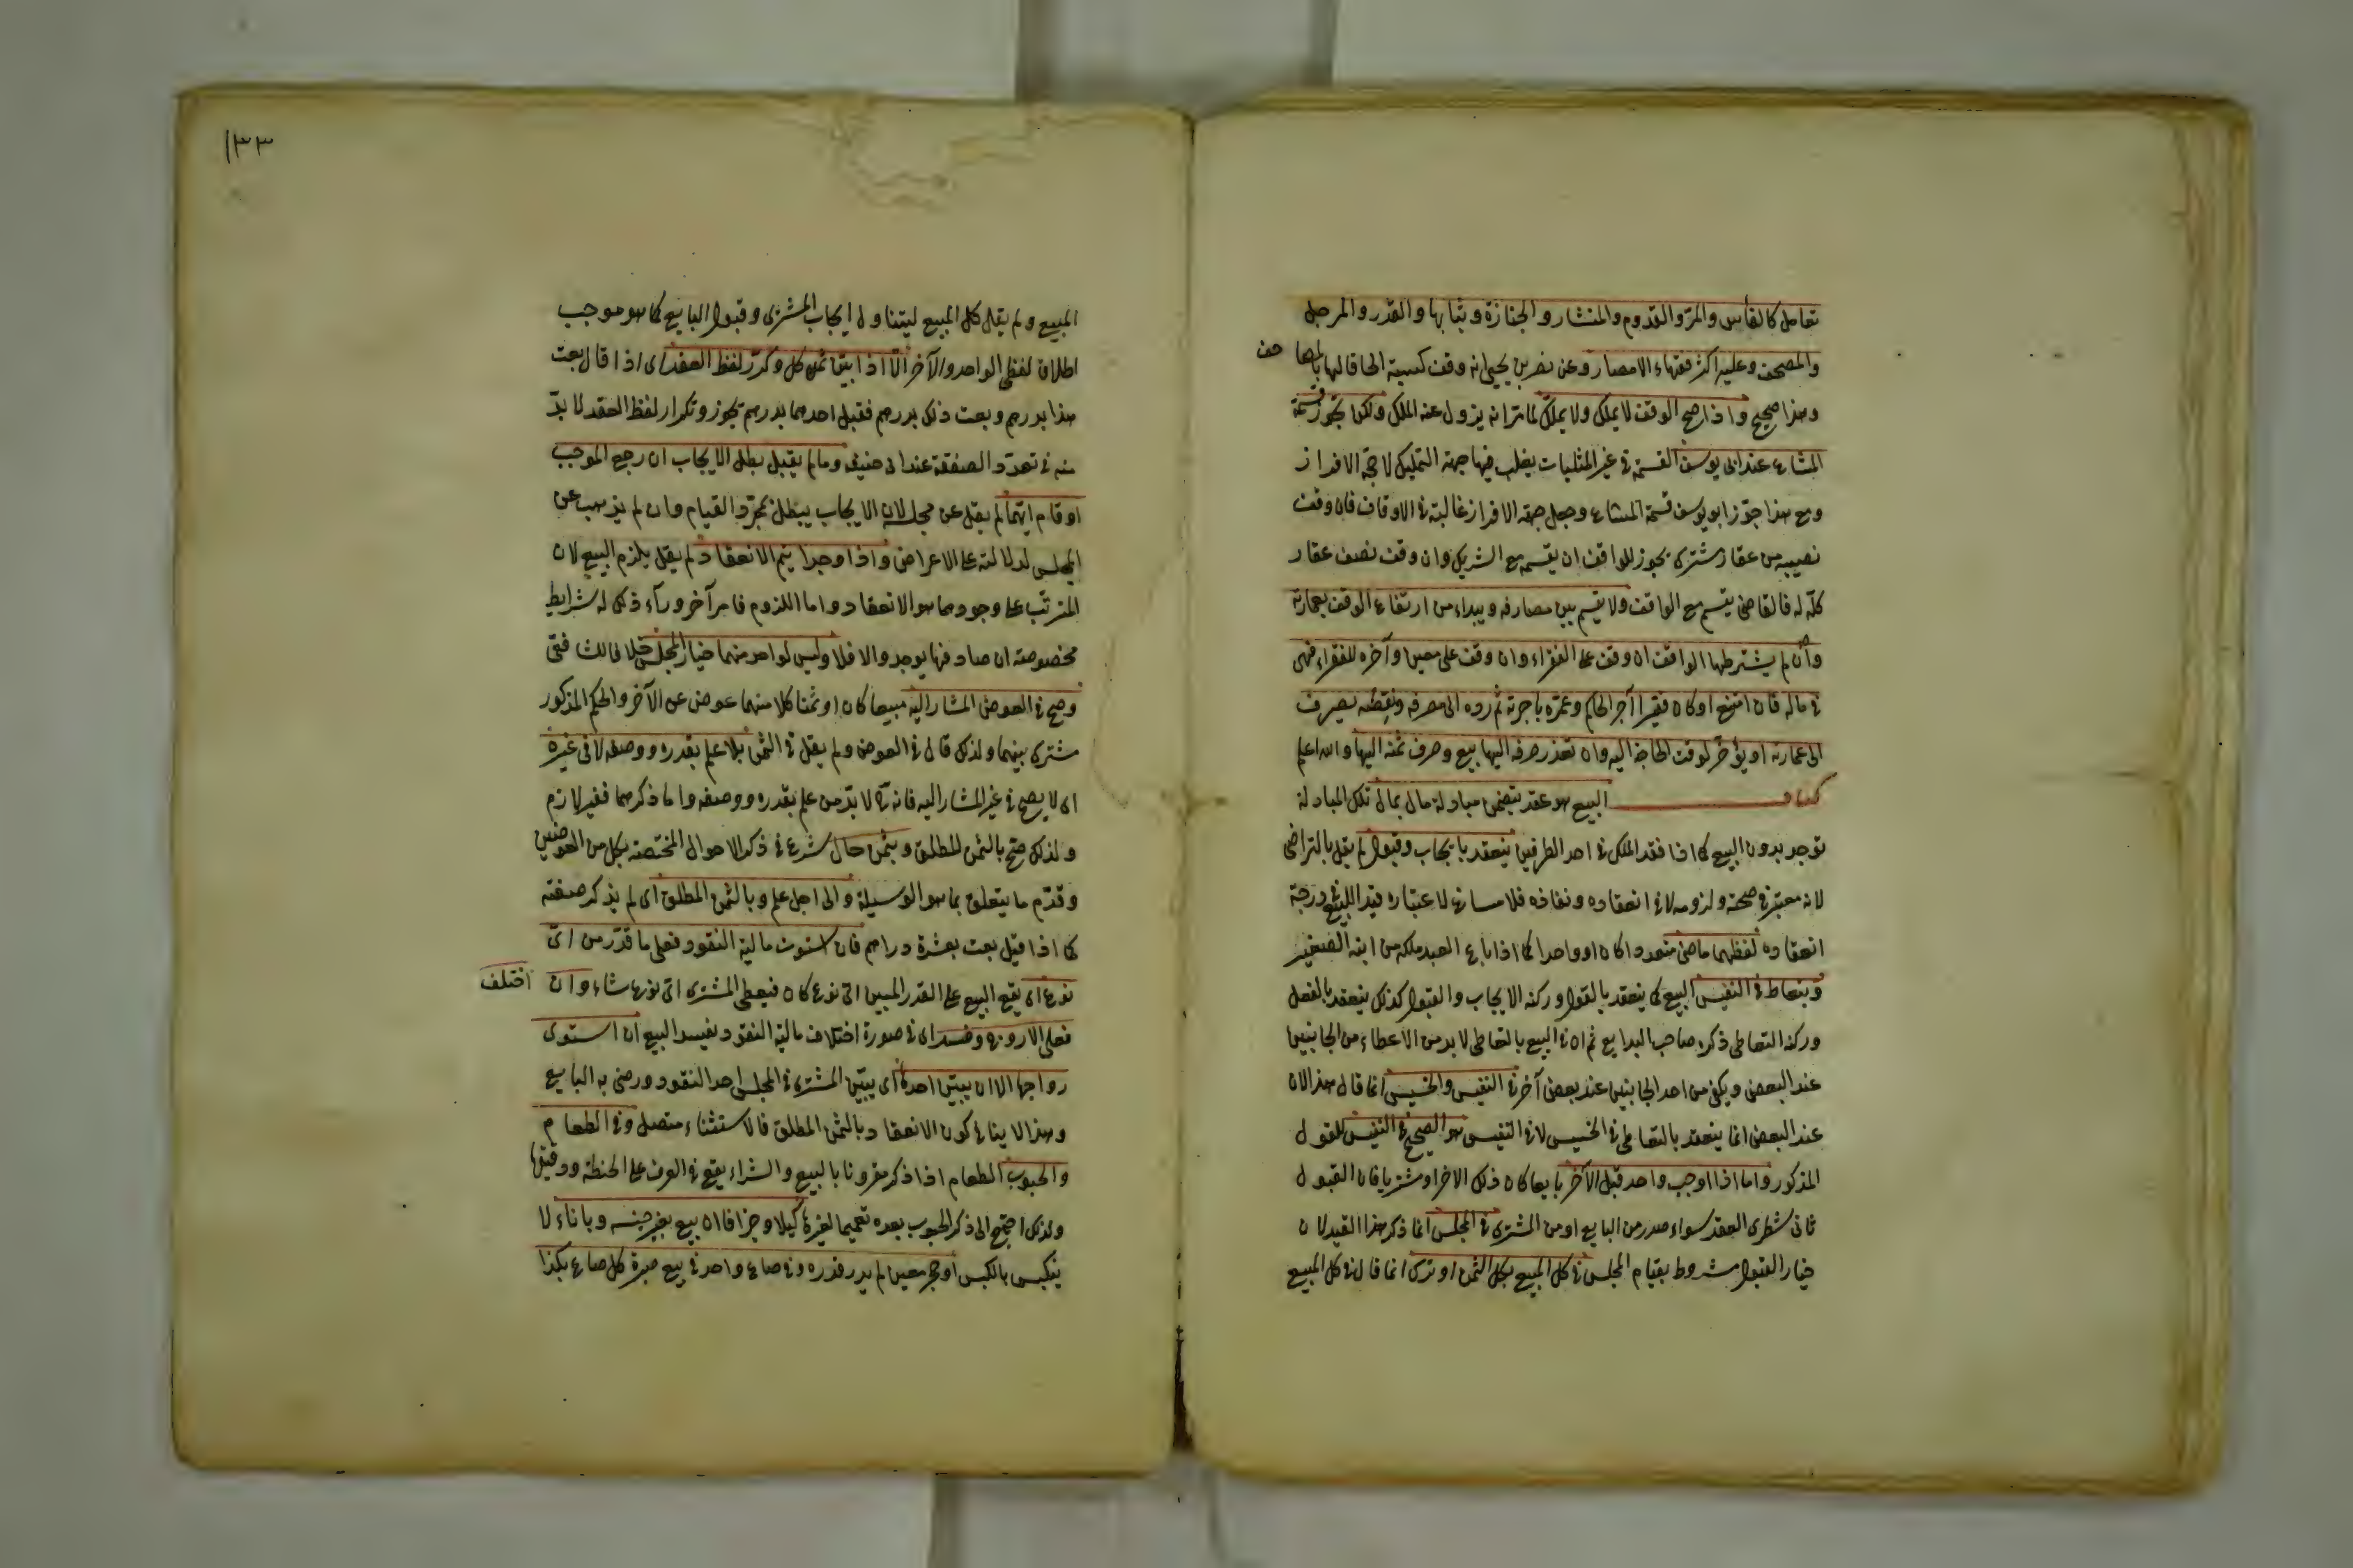 تعامل كالفأس والمرّ والقدوم والمنشار والجنازة وثيابها والقدر والمرجل
والمصحف وعليه اكثر فقهاء الامصار وعن نصر بن يحيى انه وقف كتبه الحاقا لها بالمصاحف
وهذا صحيح واذا صح الوقف لا يملك ولا يملّك لما مرّ انه يزول عنه الملك ولكن يجوز قسمة
المشاع عند ابى يوسف القسمة فى غير المثليات يغلب فيها جهة التمليك لا جهة الافراز
ومع هذا جوّز ابو يوسف قسمة المشاع وجعل جهة الافراز غالبة فى الاوقاف فان وقف
نصيبه من عقار مشترك يجوز للواقف ان يقسمه مع الشريك وان وقف نصف عقار
كلّه له فالقاضى يقسم مع الواقف ولا يقسم بين مصارفه ويبداء من ارتفاع الوقف بعمارته
وان لم يشترطها الواقف ان وقف على الفقراء وان وقف على معين وآخره للفقراء فهى
فى ماله فان امتنع او كان فقيرا آجر الحاكم وعمّره باجرته ثم ردّه الى مصرفه ونقضه يصرف
الى عمارته او يؤخّر لوقت الحاجة اليه وان تعذر صرفه اليها بيع وصرف ثمنه اليها والله اعلم
كتاب البيع هو عقد يتضمن مبادلة مال بمال تلك المبادلة
توجد بدون البيع كما اذا فقد الملك فى احد الطرفين ينعقد بايجاب وقبول لم يقل بالتراضى
لانه معتبر فى صحته ولزومه لا فى انعقاده ونفاذه فلا مساغ لاعتباره قيد البيع فى درجة
انعقاده لفظهما ماضى متعددا كان او واحدا كما اذا باع العبد ملكه من ابنه الصغير
وبتعاط فى النفيس البيع كما ينعقد بالقول وركنه الايجاب والقبول كذلك ينعقد بالفعل
وركنه التعاطى ذكره صاحب البدايع ثم ان فى البيع بالتعاطى لا بد من الاعطاء من الجانبين
عند البعض ويكفى من احد الجانبين عند بعض آخر فى النفيس والخسيس انما قال هذا لان
عند البعض انما ينعقد بالتعاطى فى الخسيس لا فى النفيس هو الصحيح فى النفيس للقول
المذكور واما اذا اوجب واحد قبل الآخر بايعا كان ذلك الاخر او مشتريا فان القبول
ثانى شطرى العقد سواء صدر من البايع او من المشترى فى المجلس انما ذكر هذا القيد لان
خيار القبول مشروط بقيام المجلس فى كل المبيع بكل الثمن او ترك انما قال فى كل المبيع
١٣٣
المبيع ولم يقل كل المبيع ليتناول ايجاب المشترى وقبول البايع كما هو موجب
اطلاق لفظى الواحد والآخر الّا اذا بيّن ثمن كل وكرّر لفظ العقد اى اذا قال بعت
هذا بدرهم وبعت ذلك بدرهم فقبل احدهما بدرهم يجوز وتكرار لفظ العقد لا بدّ
منه فى تعدّد الصفقة عند ابى حنيفة وما لم يقبل بطل الايجاب ان رجع الموجب
او قام ايّهما لم يقل عن مجلسه لان الايجاب يبطل بمجرّد القيام وان لم يذهب عن
المجلس لدلالته على الاعراض واذا وجدا يتم الانعقاد لم يقل يلزم البيع لان
المترتّب على وجودهما هو الانعقاد واما اللزوم فامر آخر ورآء ذلك له شرايط
مخصوصة ان صادفها يوجد والا فلا وليس لواحد منهما خيار المجلس خلافا للشافعى
وصح فى العوض المشار اليه مبيعا كان او ثمنا كلا منهما عوض عن الآخر والحكم المذكور
مشترك بينهما ولذلك قال فى العوض ولم يقل فى الثمن بلا علم بقدره ووصفه لا فى غيره
اى لا يصح فى غير المشار اليه فانه لا بدّ من علم بقدره ووصفه واما ذكرهما فغير لازم
ولذلك صح بالثمن المطلق وبثمن حال شرع فى ذكر الاحوال المختصة بكل من العوضين
وقدّم ما يتعلق بما هو الوسيلة والى اجل علم وبالثمن المطلق اى لم يذكر صفته
كما اذا قيل بعت بعشرة دراهم فان استوت مالية النقود فعلى ما قدّر من اىّ
نوع اى يقع البيع على القدر المبين اىّ نوع كان فيعطى المشترى اىّ نوع شاء وان اختلف
فعلى الاروج وفسد اى فى صورة اختلاف مالية النقود يفسد البيع ان استوى
رواجها الا ان يبيّن احدها اى يبيّن المشترى فى المجلس احد النقود ورضى به البايع
وهذا لا ينافى كون الانعقاد بالثمن المطلق فالاستثناء متصل وفى الطعام
والحبوب الطعام اذا ذكر مقرونا بالبيع والشراء يقع فى العرف على الحنطة ودقيقها
ولذلك احتيج الى ذكر الحبوب بعده تعميما لغيرها كيلا وجزافا ان بيع بغير جنسه وباناء لا
ينكبس بالكبس او حجر معين لم يدر قدره وفى صاع واحد فى بيع صبرة كل صاع بكذا